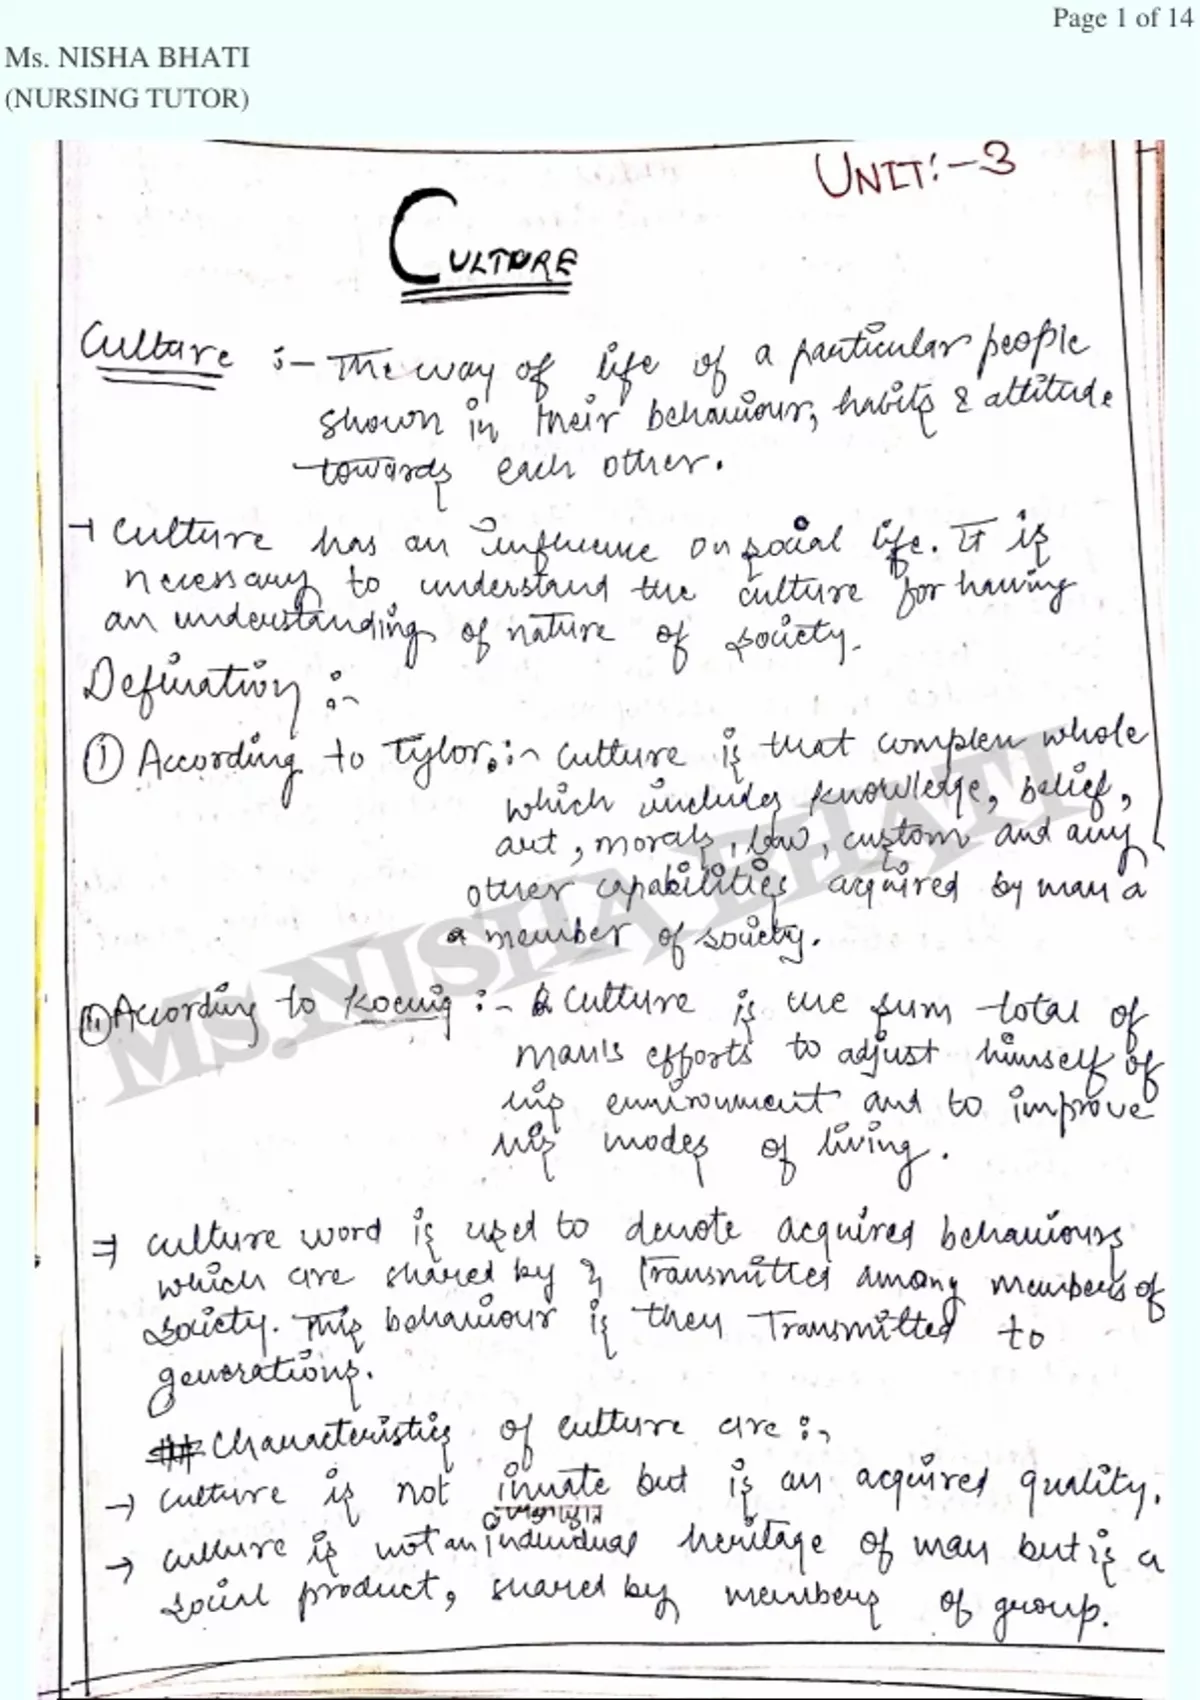 Page 1 of 14
Ms. NISHA BHATI
(NURSING TUTOR)
UNIT:-3
CULTURE
Culture :- The way of life of a particular people
shown in their behaviour, habits & attitude
towards each other.
→ Culture has an influence on social life. It is
necessary to understand the culture for having
an understanding of nature of society.
Defination :-
(i) According to Tylor :- Culture is that complex whole
which includes knowledge, belief,
art, morals, law, custom and any
other capabilities acquired by man a
a member of society.
(ii) According to Koenig :- Culture is the sum total of
man's efforts to adjust himself of
his environment and to improve
his modes of living.
⇒ Culture word is used to denote acquired behaviours
which are shared by & Transmitted among members of
society. This behaviour is then Transmitted to
generations.
## Characteristics of culture are :-
→ Culture is not innate but is an acquired quality.
→ Culture is not an individual heritage of man but is a
social product, shared by members of group.
MS.NISHA BHATI